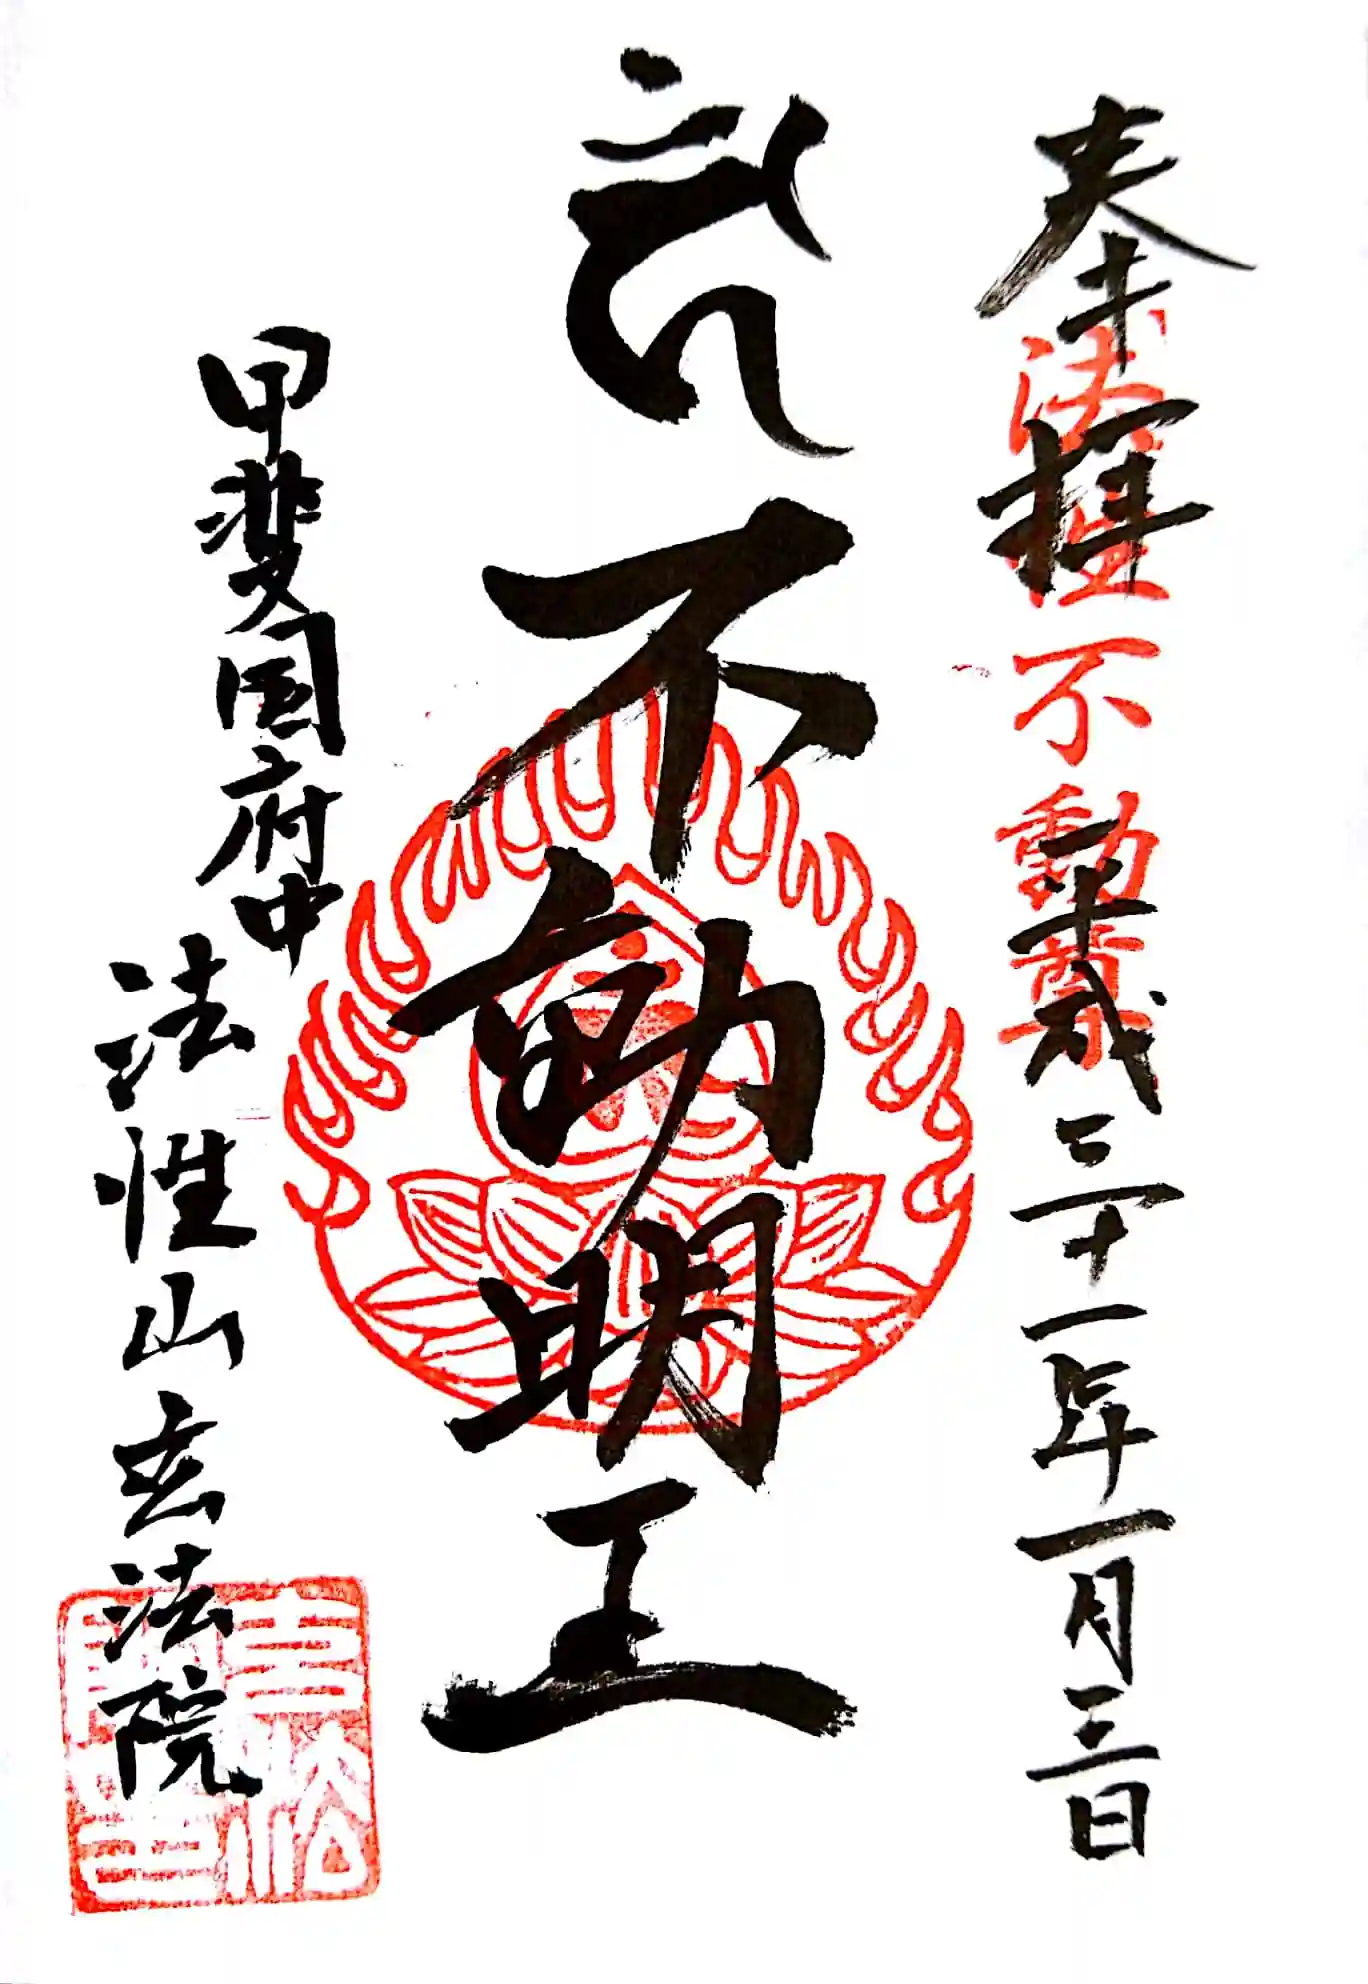 奉拝
法性不動尊
平成三十一年一月三日
不動明王
甲斐国府中
法性山玄法院